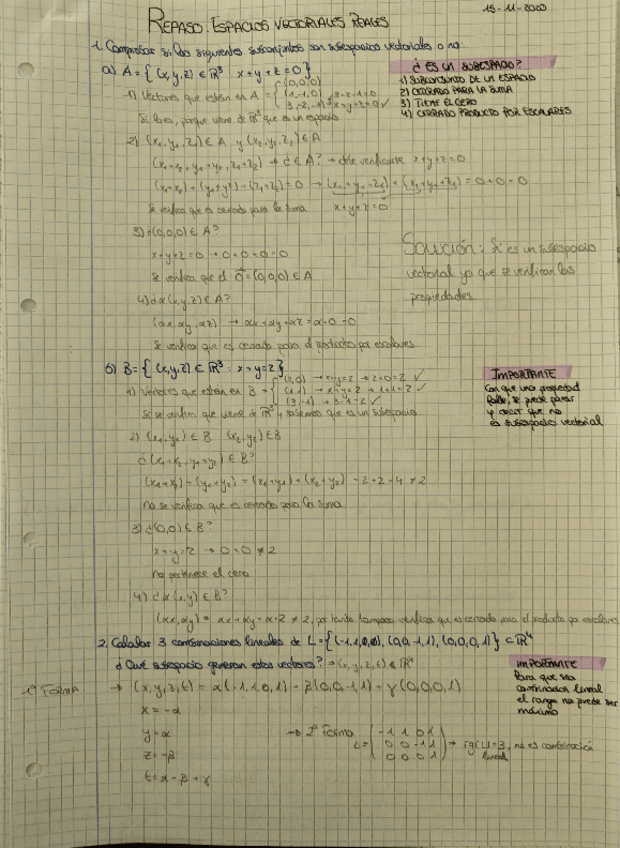 15-11-2020
REPASO: ESPACIOS VECTORIALES REALES
1. Comprobar si los siguientes subconjuntos son subespacios vectoriales o no.
a) A = { (x,y,z) ∈ ℝ³ x+y+z=0 }
¿ ES UN SUBESPACIO?
1) SUBCONJUNTO DE UN ESPACIO
2) CERRADO PARA LA SUMA
3) TIENE EL CERO
4) CERRADO PRODUCTO POR ESCALARES
1) Vectores que están en A = { (0,0,0)
(1,-1,0)
(3,-2,-1) → x+y+z=0 ✓
3-2-1=0
Si lo es, porque viene de ℝ³ que es un espacio
2) (x₁,y₁,z₁) ∈ A y (x₂,y₂,z₂) ∈ A
(x₁+x₂, y₁+y₂, z₁+z₂) → ¿ ∈ A? → debe verificarse x+y+z=0
= 0+0=0
x+y+z=0
Se verifica que es cerrado para la suma
3) ¿(0,0,0) ∈ A?
x+y+z=0 → 0+0+0=0
Se verifica que el 0⃗ = (0,0,0) ∈ A
Solución: Sí es un subespacio
vectorial ya que se verifican las
propiedades
4) ¿α(x,y,z) ∈ A?
(αx, αy, αz) → αx+αy+αz = α·0=0
Se verifica que es cerrado para el producto por escalares
b) B = { (x,y,z) ⊂ ℝ³ : x+y=2 }
IMPORTANTE
Con que una propiedad
falle, se puede parar
y decir que no
es subespacio vectorial
1) Vectores que están en B = { (2,0) → x+y=2 → 2+0=2 ✓
(1,1) → x+y=2 → 1+1=2 ✓
(3,-1) → 3-1=2 ✓
Si se verifica que viene de ℝ³ y sabemos que es un subespacio
2) (x₁,y₁) ∈ B (x₂,y₂) ∈ B
¿(x₁+x₂, y₁+y₂) ∈ B?
(x₁+x₂)+(y₁+y₂) = (x₁+y₁)+(x₂+y₂) = 2+2=4 ≠ 2
no se verifica que es cerrado para la suma
3) ¿(0,0) ∈ B?
x+y=2 → 0+0 ≠ 2
no pertenece el cero
4) ¿α(x,y) ∈ B?
(αx,αy) = αx+αy = α·2 ≠ 2, por tanto tampoco verifica que es cerrado para el producto por escalares
2. Calcular 3 combinaciones lineales de L = { (-1,1,0,1), (0,0,-1,1), (0,0,0,1) } ⊂ ℝ⁴
¿Qué subespacio generan estos vectores? → (x,y,z,t) ∈ ℝ⁴
IMPORTANTE
Para que sea
combinación lineal
el rango no puede ser
máximo
1ª FORMA → (x,y,z,t) = α(-1,1,0,1) + β(0,0,-1,1) + γ(0,0,0,1)
x = -α
y = α
z = -β
t = α+β+γ
→ 2ª forma
L = ( -1 1 0 1
0 0 -1 1
0 0 0 1 ) → rg(L)=3, no es combinación
lineal